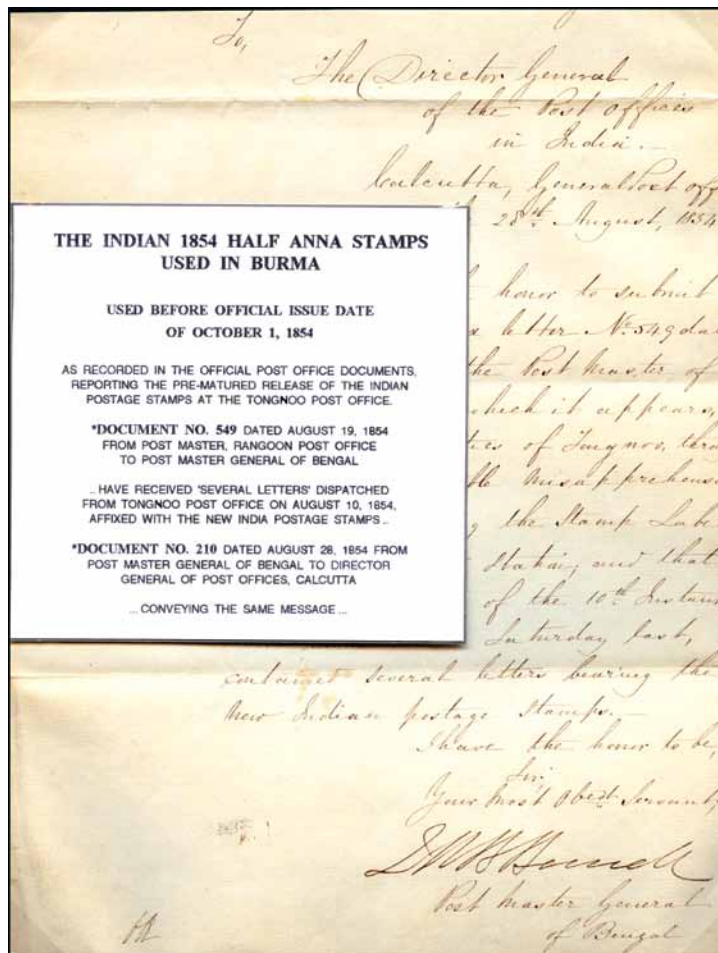 To,
The Director General
of the Post offices
in India.—
Calcutta, General Post off
28th August, 1854
THE INDIAN 1854 HALF ANNA STAMPS
USED IN BURMA
USED BEFORE OFFICIAL ISSUE DATE
OF OCTOBER 1, 1854
AS RECORDED IN THE OFFICIAL POST OFFICE DOCUMENTS,
REPORTING THE PRE-MATURED RELEASE OF THE INDIAN
POSTAGE STAMPS AT THE TONGNOO POST OFFICE.
*DOCUMENT NO. 549 DATED AUGUST 19, 1854
FROM POST MASTER, RANGOON POST OFFICE
TO POST MASTER GENERAL OF BENGAL
.. HAVE RECEIVED 'SEVERAL LETTERS' DISPATCHED
FROM TONGNOO POST OFFICE ON AUGUST 10, 1854,
AFFIXED WITH THE NEW INDIA POSTAGE STAMPS ..
*DOCUMENT NO. 210 DATED AUGUST 28, 1854 FROM
POST MASTER GENERAL OF BENGAL TO DIRECTOR
GENERAL OF POST OFFICES, CALCUTTA
... CONVEYING THE SAME MESSAGE ...
honor to submit
letter No. 549 da
the Post Master of
which it appears,
of Tongnoo, thro
misapprehens
the Stamp Labe
Station, and that
of the 10th Instan
Saturday last,
contained several letters bearing the
New Indian postage stamps.—
I have the honor to be,
Sir,
Your most Obedt Servant,
Post Master General
of Bengal